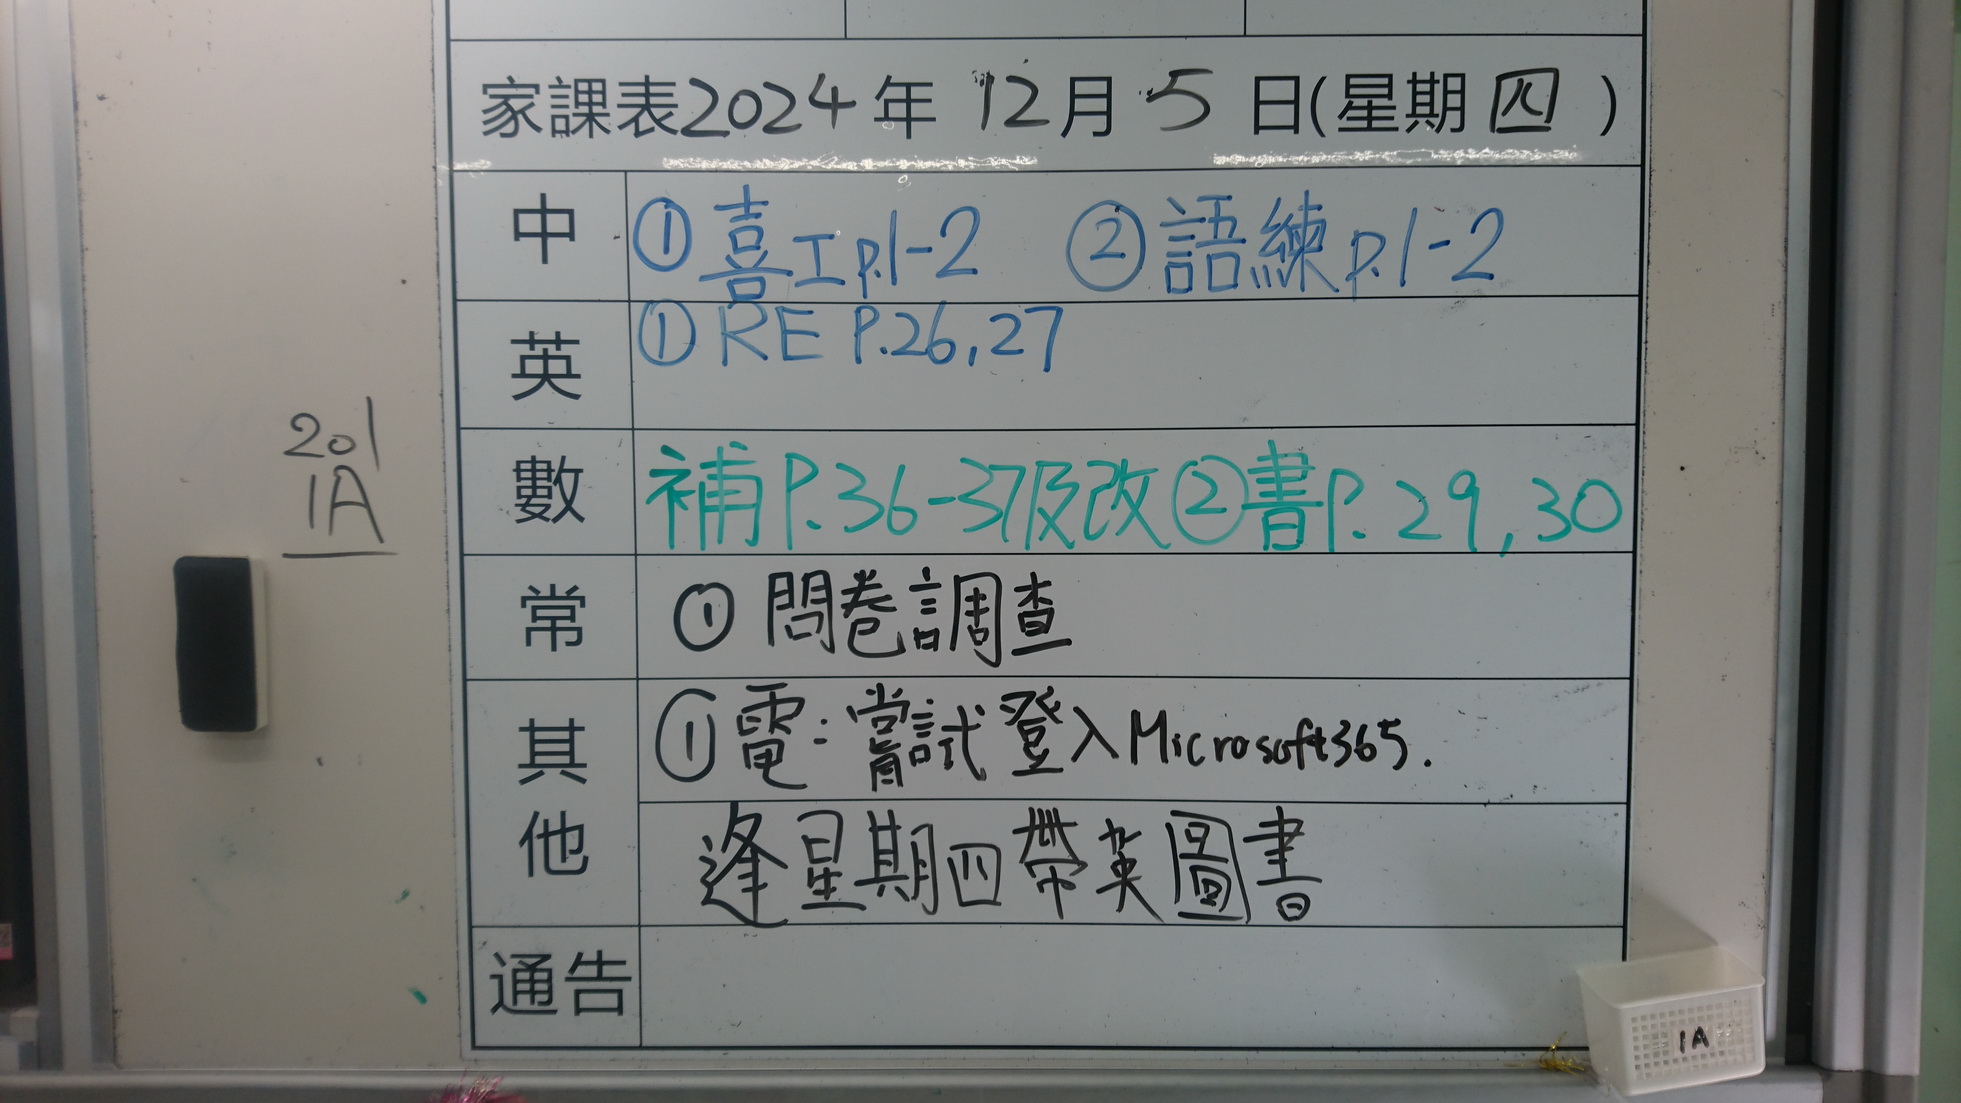 家課表2024年 12月 5 日(星期 四 )
中 ①喜工p.1-2 ②語練p.1-2
英 ①RE P.26,27
數 補P.36-37及改②書P.29,30
常 ① 問卷調查
其他 ①電:嘗試登入Microsoft365.
逢星期四帶英圖書
通告
201
1A
1A